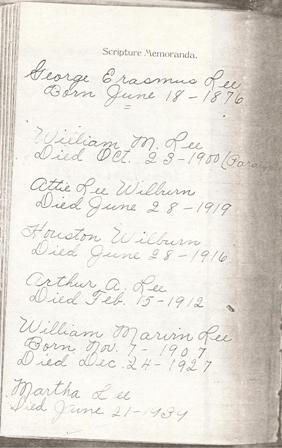 Scripture Memoranda.
George Erasmus Lee
Born June 18-1876
William M. Lee
Died Oct. 23-1900
Attie Lee Wilburn
Died June 28-1919
Houston Wilburn
Died June 28-1916
Arthur A. Lee
Died Feb. 15-1912
William Marvin Lee
Born Nov. 7-1907
Died Dec. 24-1927
Martha Lee
Died June 21-1934